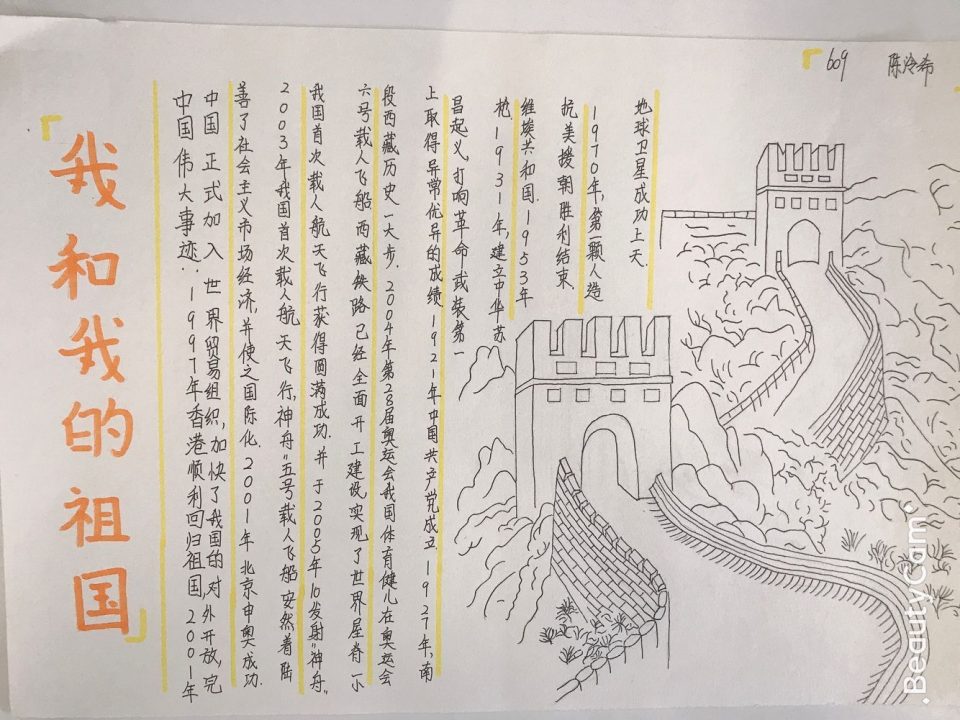 我和我的祖国
中国伟大事迹:1997年香港顺利回归祖国,2001年
中国正式加入世界贸易组织,加快了我国的对外开放,完
善了社会主义市场经济,并使之国际化.2001年北京申奥成功.
2003年我国首次载人航天飞行,神舟"五号载人飞船安然着陆
我国首次载人航天飞行获得圆满成功.并于2005年10发射"神舟"
六号载人飞船西藏铁路已经全面开工建设实现了世界屋脊一小
段西藏历史一大步.2004年第28届奥运会我国体育健儿在奥运会
上取得异常优异的成绩1921年中国共产党成立.1927年,南
昌起义打响革命武装第一
枪,1931年,建立中华苏
维埃共和国.1953年
抗美援朝胜利结束
1970年,第一颗人造
地球卫星成功上天
609 陈泠希
BeautyCam